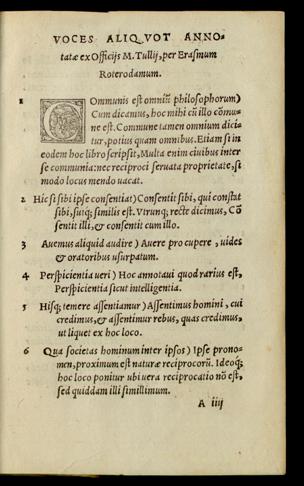 VOCES ALIQVOT ANNO-
tatæ ex Officijs M. Tullij, per Erasmum
Roterodamum.
1 COmmunis est omniū philosophorum)
Cum dicamus, hoc mihi cū illo cōmu-
ne est. Commune tamen omnium dici-
tur, potius quam omnibus. Etiam si in
eodem hoc libro scripsit, Multa enim ciuibus inter
se communia: nec reciproci seruata proprietate, si
modo locus mendo uacat.
2 Hic si sibi ipse consentiat) Consentit sibi, qui constat
sibi, suiq; similis est. Vtrunq; recte dicimus, Cō
sentit illi, & consentit cum illo.
3 Auemus aliquid audire) Auere pro cupere, uides
& oratoribus usurpatum.
4 Perspicientia ueri) Hoc annotaui quod rarius est,
Perspicientia sicut intelligentia.
5 Hisq; temere assentiamur) Assentimus homini, cui
credimus, & assentimur rebus, quas credimus,
ut liquet ex hoc loco.
6 Qua societas hominum inter ipsos) Ipse prono-
men, proximum est naturæ reciprocorū. Ideoq;
hoc loco ponitur ubi uera reciprocatio nō est,
sed quiddam illi simillimum.
A iiij